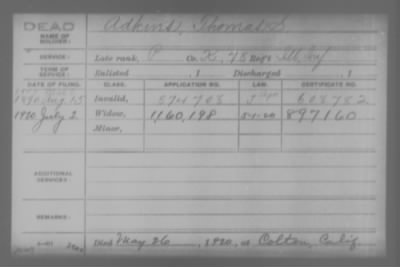 DEAD Adkins, Thomas S
NAME OF SOLDIER:
SERVICE: Late rank, P Co. K, 75 Reg't Ill. Inf
TERM OF SERVICE: Enlisted , 1 Discharged , 1
DATE OF FILING. CLASS. APPLICATION NO. LAW. CERTIFICATE NO.
1890 Aug. 15 Invalid, 874708 608782
1920 July 2 Widow, 1,160,198 5-1-20 897160
Minor,
ADDITIONAL SERVICES:
REMARKS:
Died May 26 , 1920, at Colton, Calif